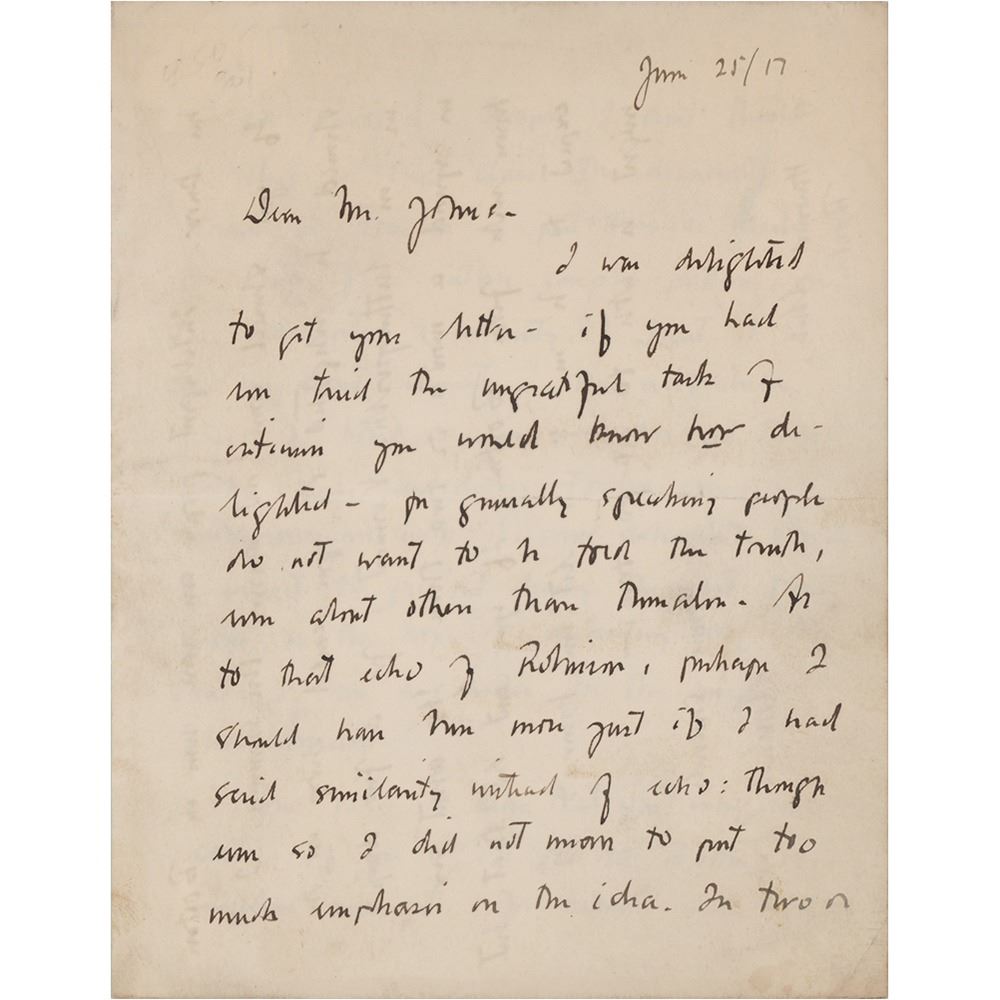 June 25/17
Dear Mr. Johns-
I was delighted
to get your letter - if you had
ever tried the ungrateful task of
criticism you would know how de-
lighted - for generally speaking people
do not want to be told the truth,
even about other than themselves. As
to that echo of Robinson, perhaps I
should have been more just if I had
said similarity instead of echo: though
even so I did not mean to put too
much emphasis on the idea. In two or